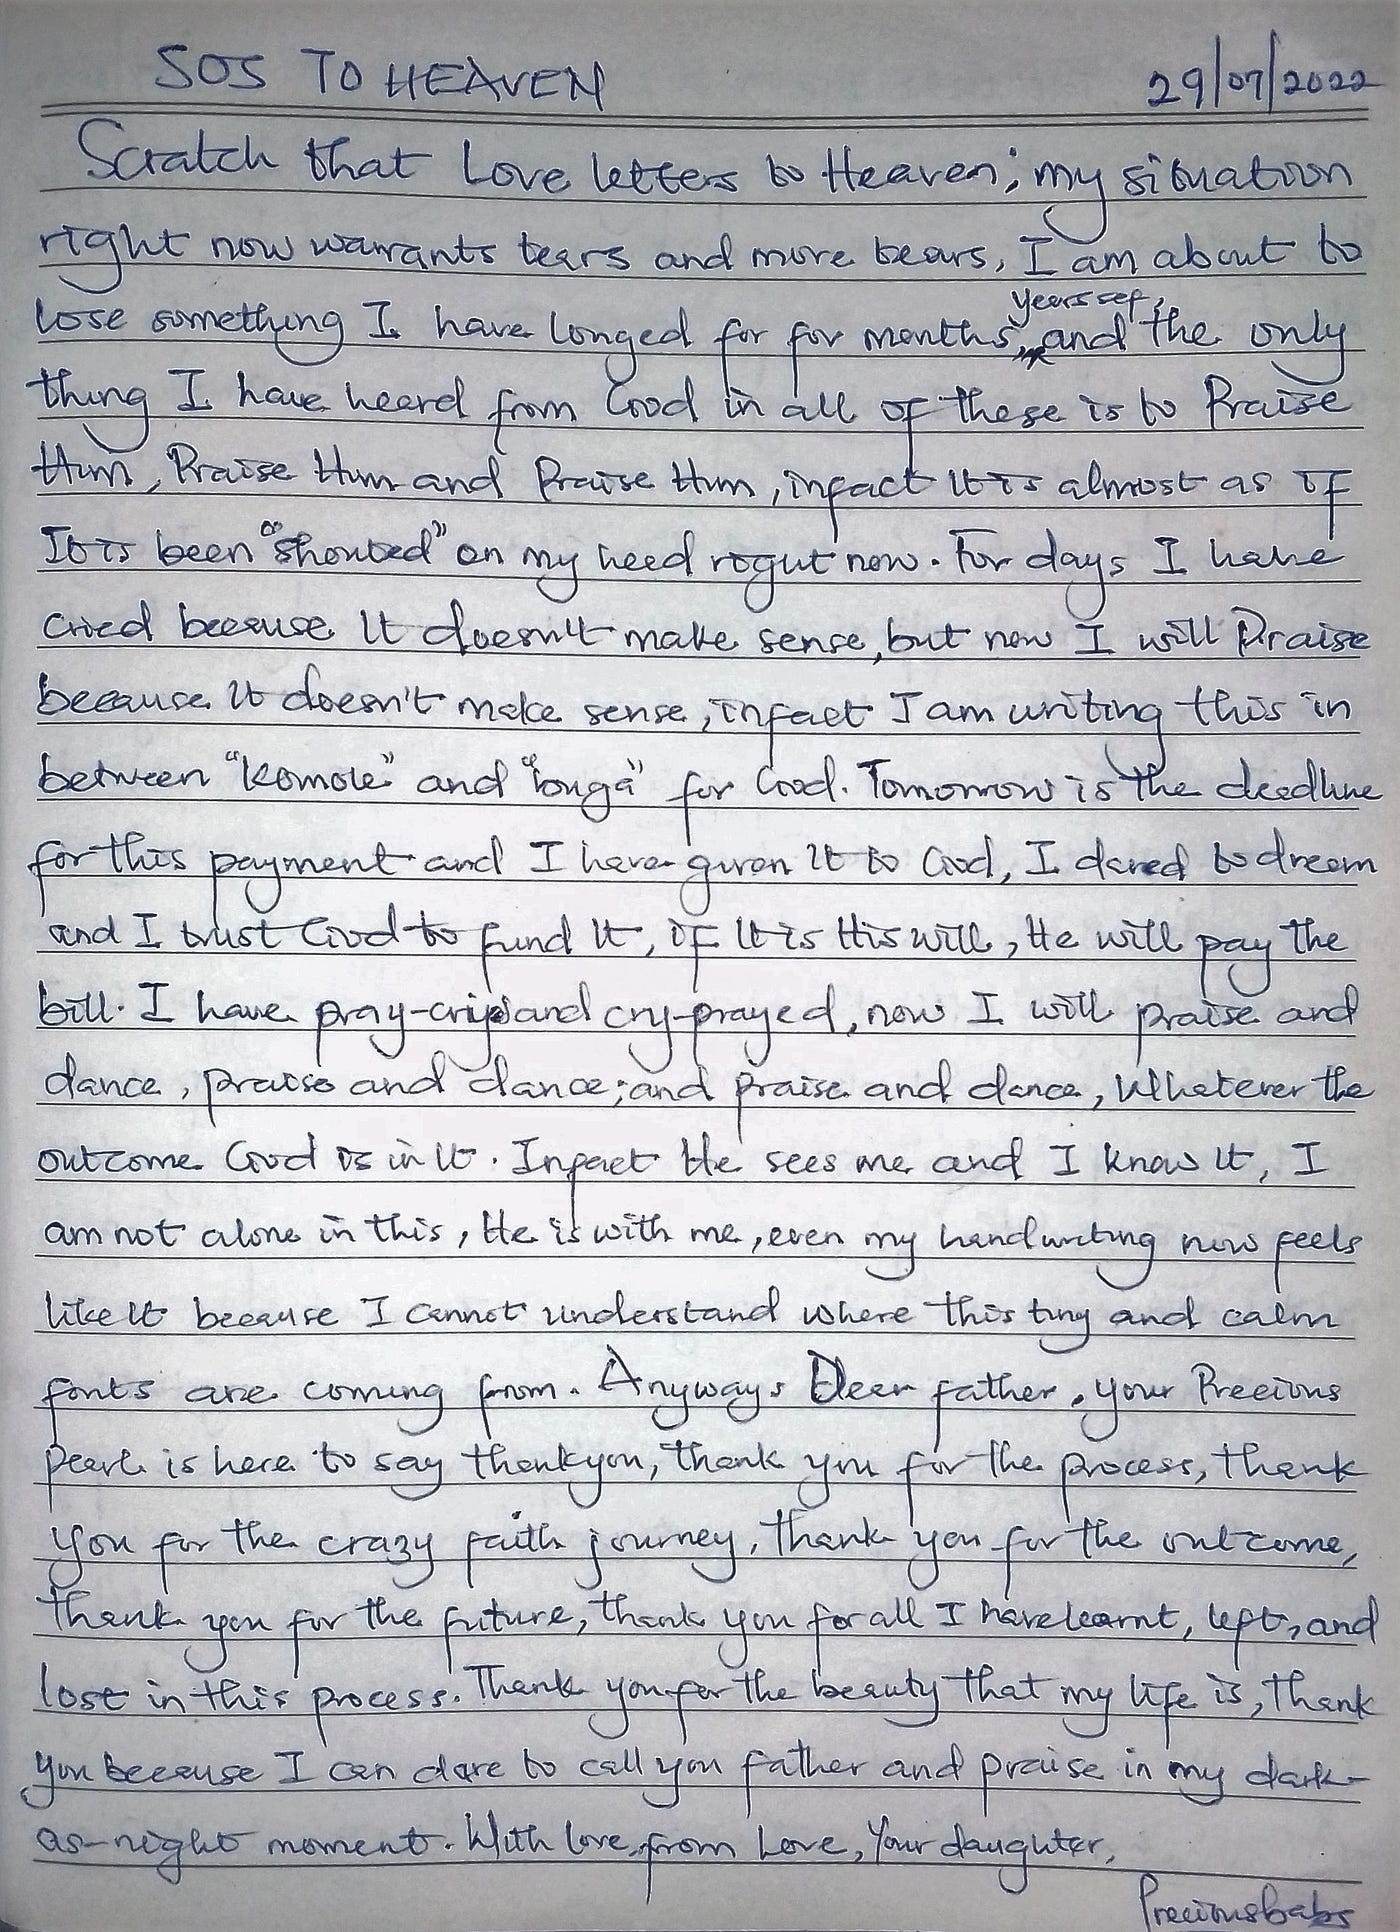 SOS TO HEAVEN 29/07/2022
Scratch that Love letters to Heaven; my situation
right now warrants tears and more tears, I am about to
years sef,
lose something I have longed for for months, and the only
thing I have heard from God in all of these is to Praise
Him, Praise Him and Praise Him, infact It is almost as if
It is been "shouted" on my head right now. For days I have
cried because It doesn't make sense, but now I will Praise
because It doesn't make sense, infact I am writing this in
between "komole" and "onga" for God. Tomorrow is the deadline
for this payment and I have given It to God, I dared to dream
and I trust God to fund It, if It is His will, He will pay the
bill. I have pray-cried and cry-prayed, now I will praise and
dance, praise and dance; and praise and dance, Whatever the
outcome God is in It. Infact He sees me and I know It, I
am not alone in this, He is with me, even my handwriting now feels
like It because I cannot understand where this tiny and calm
fonts are coming from. Anyways Dear father, your Precious
Pearl is here to say thankyou, thank you for the process, thank
you for the crazy faith journey, thank you for the outcome,
thank you for the future, thank you for all I have learnt, left, and
lost in this process. Thank you for the beauty that my life is, thank
you because I can dare to call you father and praise in my dark-
as-night moment. With love, from Love, Your daughter,
Preciousbabs